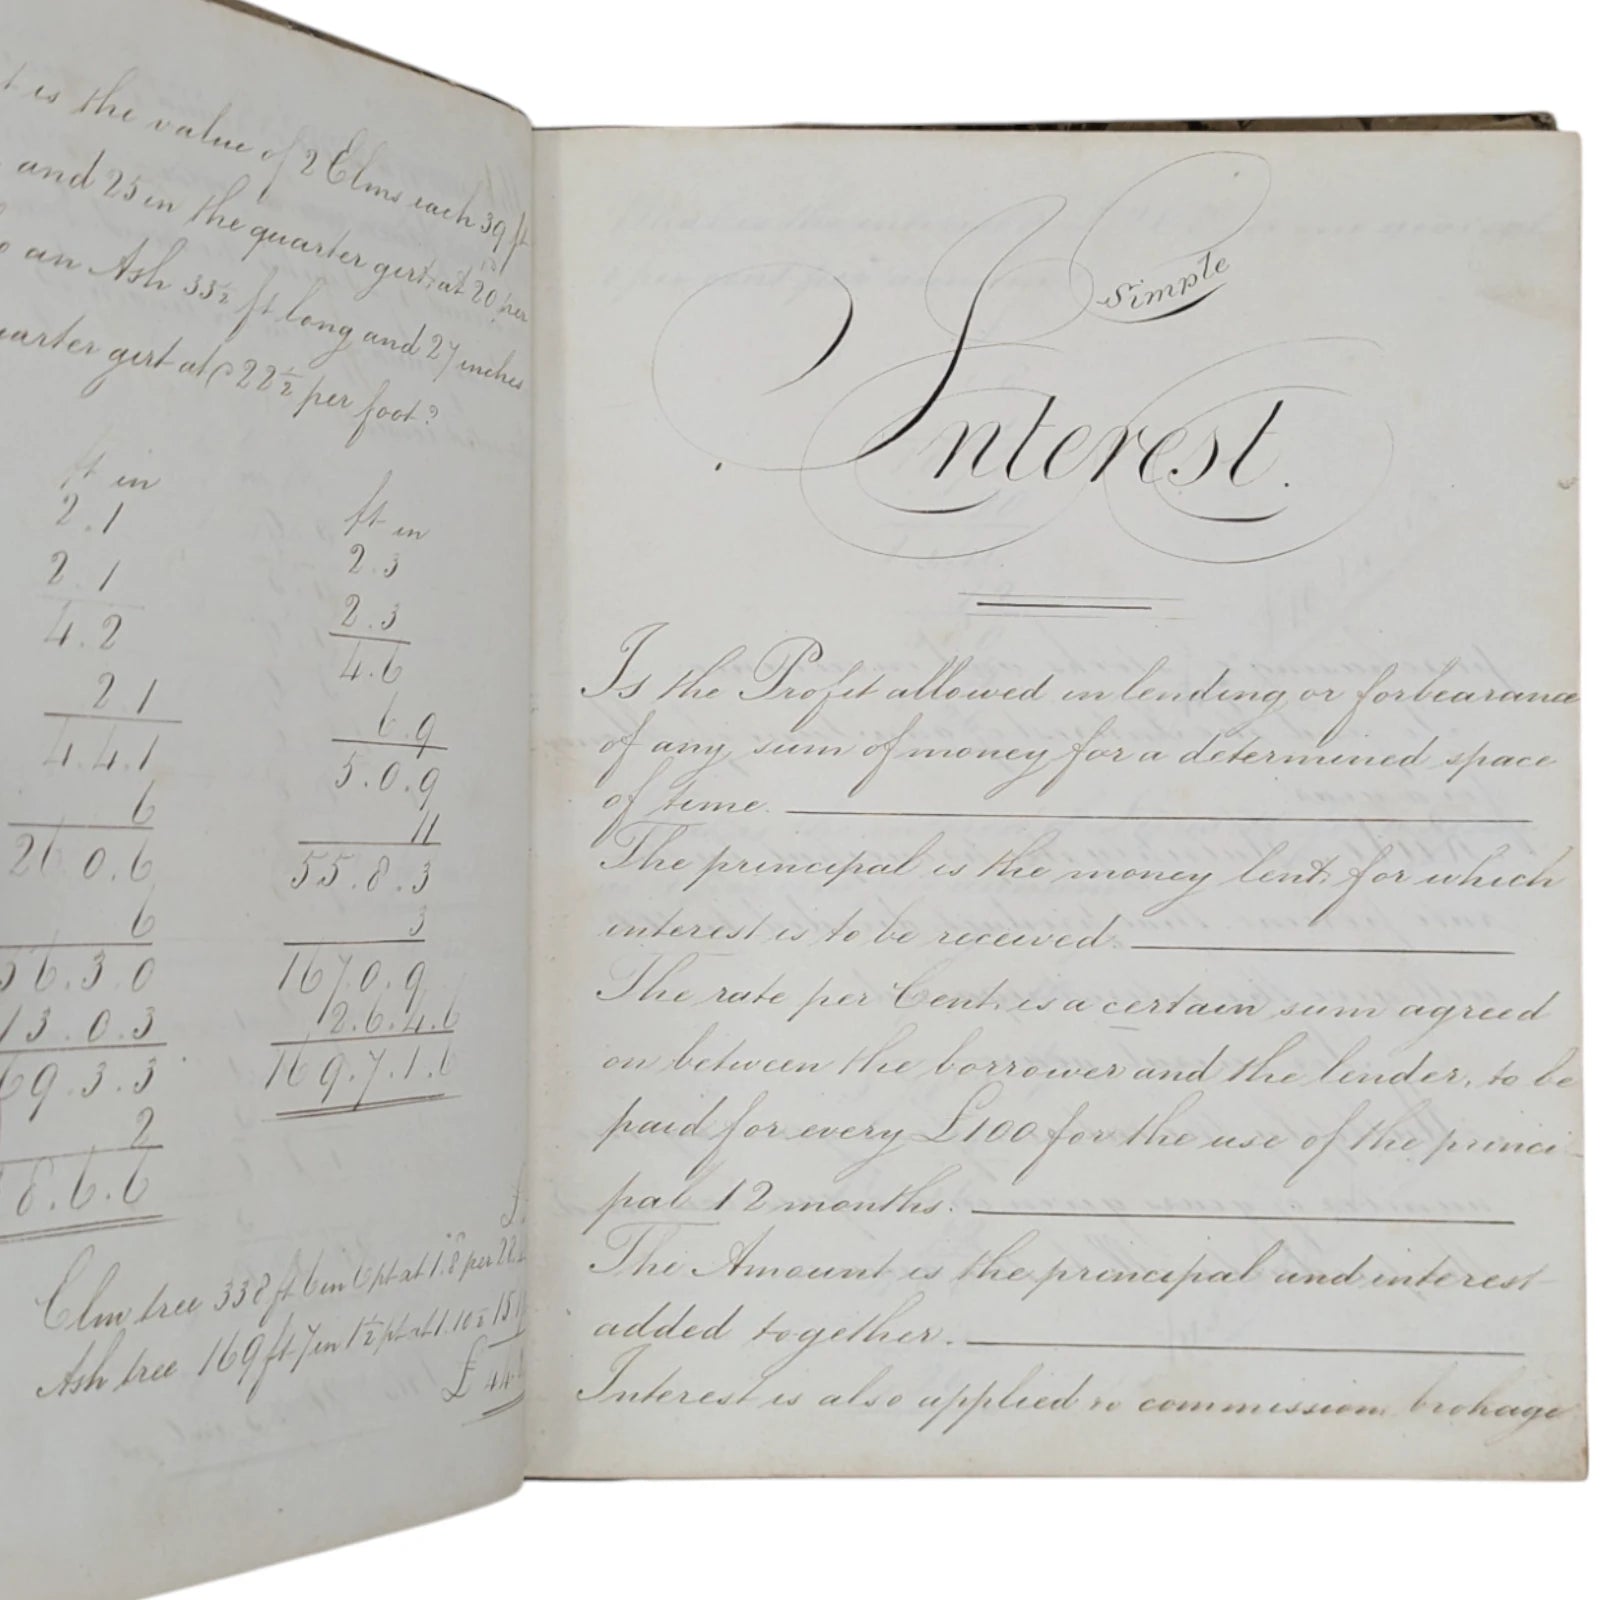 is the value of 2 Elms each 39 ft
and 25 in the quarter girt, at 20 per
an Ash 33½ ft long and 27 inches
quarter girt at 22½ per foot?
ft in
2.1
2.1
4.2
2 1
4.4.1
6
26 0.6
6
56.3.0
13.0.3
69.3.3
2
8.6.6
ft in
2.3
2.3
4.6
6.9
5.0.9
11
55.8.3
3
167.0.9
2.6.4.6
169.7.1.6
£
Elm tree 338 ft 6 in 6 pt at 1.8 per 28
Ash tree 169 ft 7 in 1½ pt at 1.10½ 15
£ 44
Simple
Interest.
Is the Profit allowed in lending or forbearance
of any sum of money for a determined space
of time.
The principal is the money lent, for which
interest is to be received.
The rate per Cent, is a certain sum agreed
on between the borrower and the lender, to be
paid for every £100 for the use of the princi-
pal 12 months.
The Amount is the principal and interest
added together.
Interest is also applied to commission, brokage